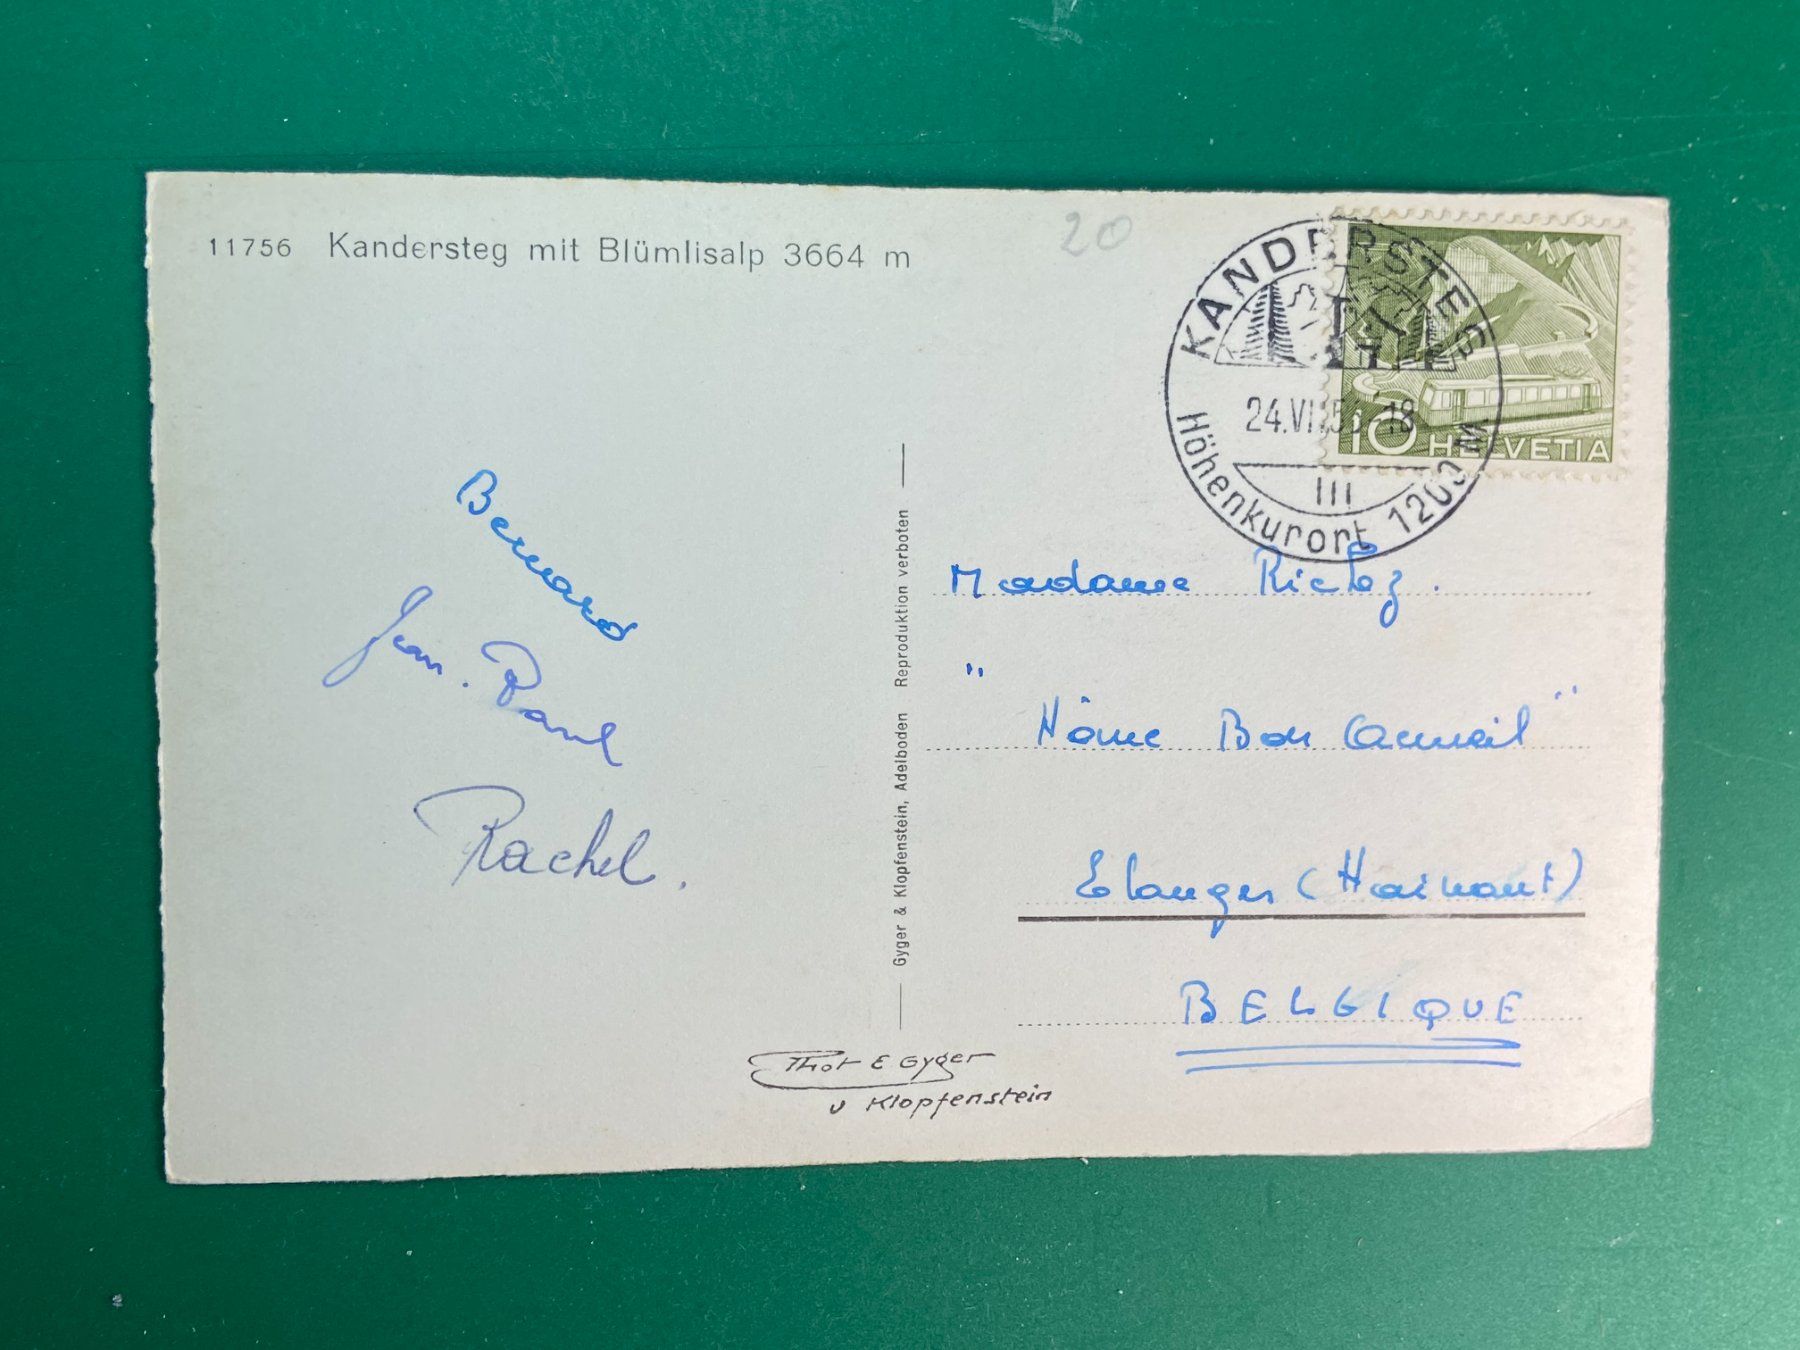 11756 Kandersteg mit Blümlisalp 3664 m
20
KANDERSTEG
24.VII.5 -18
III
Höhenkurort 1200 M
10 HELVETIA
Bernard
Jean. Paul
Rachel.
Gyger & Klopfenstein, Adelboden Reproduktion verboten
Madame
"
Hôme Bon Accueil"
(Hainaut)
BELGIQUE
Phot E Gyger
u Klopfenstein